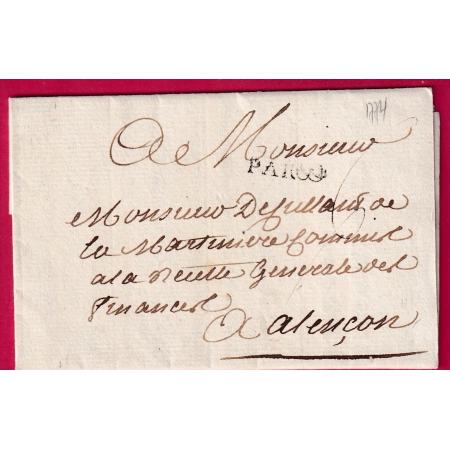 1774
A Monsieur
PARIS
Monsieur de
la Martiniere Commis
a la Recette Generale des
finances
A alençon